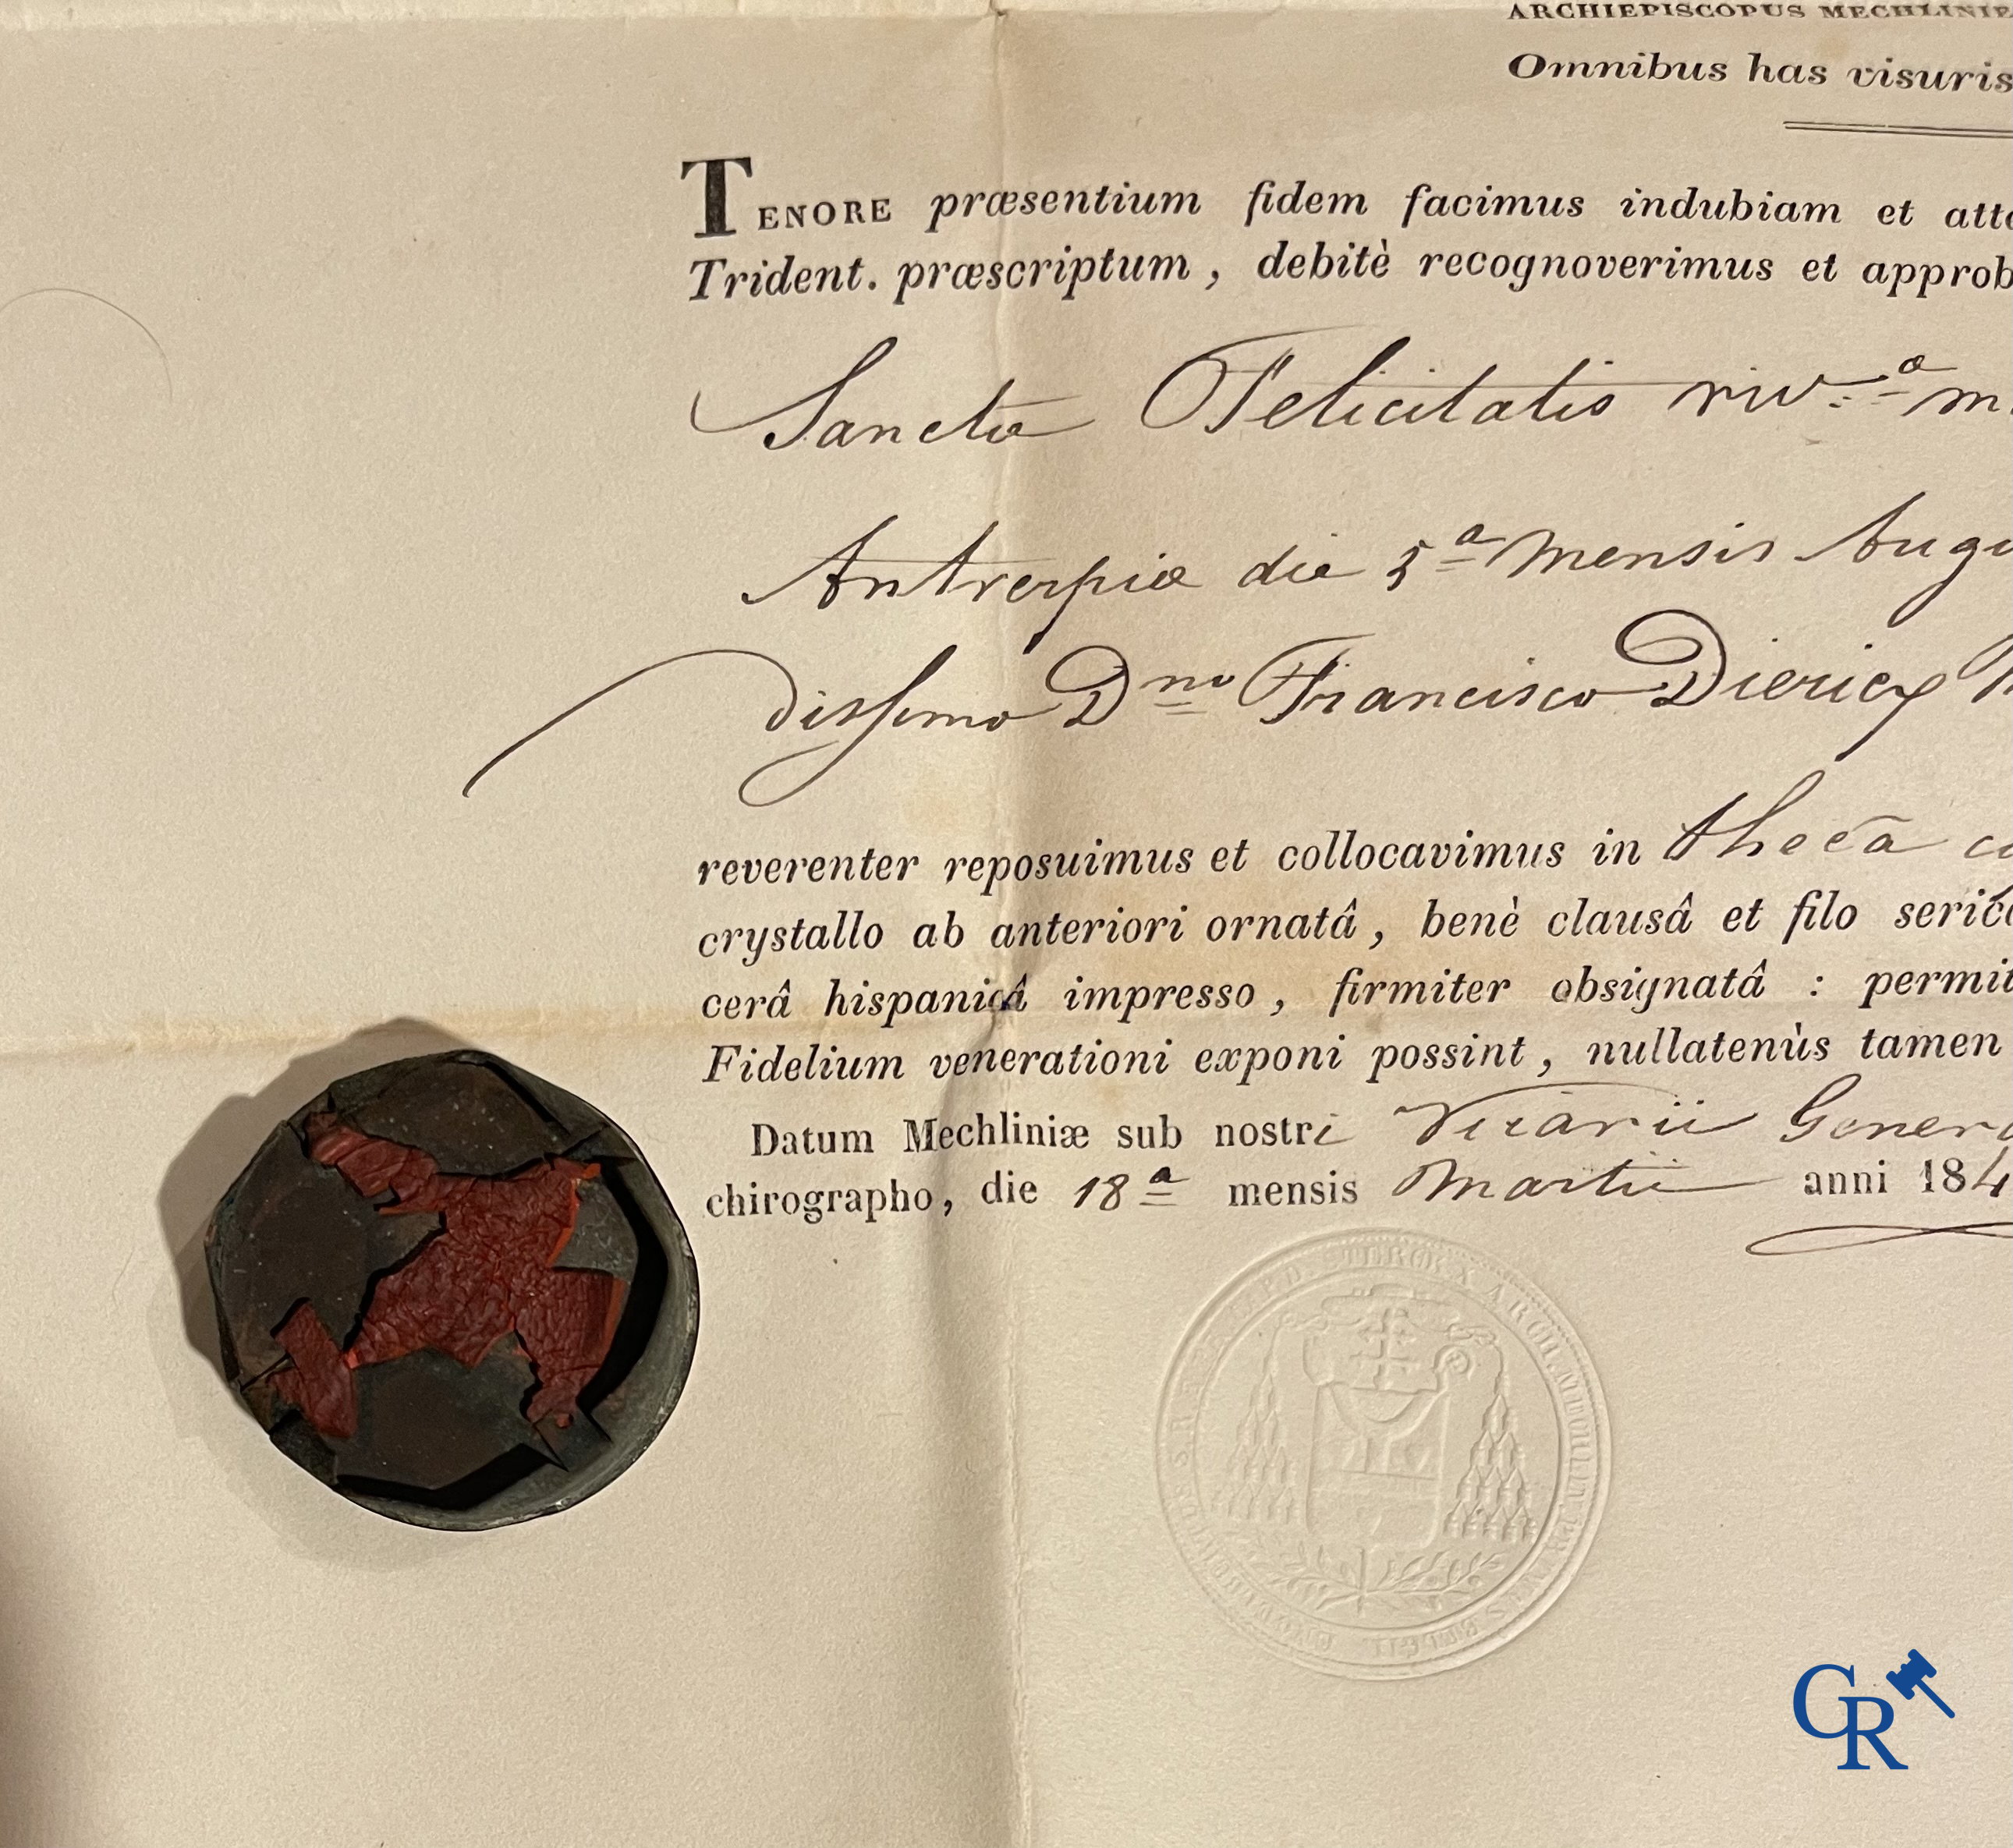 ARCHIEPISCOPUS MECHLINIE
Omnibus has visuris
TENORE præsentium fidem facimus indubiam et atte
Trident. præscriptum, debitè recognoverimus et approb
Sanctæ Felicitatis viv.ª m
Antverpiæ die 5ª mensis Augu
dissimo Dno Francisco Diericx
reverenter reposuimus et collocavimus in thecâ co
crystallo ab anteriori ornatâ, benè clausâ et filo serico
cerâ hispanicâ impresso, firmiter obsignatâ : permit
Fidelium venerationi exponi possint, nullatenùs tamen
Datum Mechliniæ sub nostri Vicarii Genera
chirographo, die 18ª mensis Martii anni 184
CR